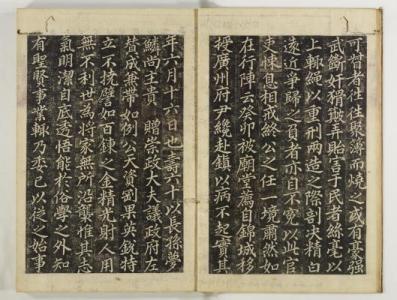 可贖者往往聚簿而燒之或有豪強
武斷奸猾舞弄貽害于民者絲毫以
上輒繩以重刑兩造之際剖決精白
遠近爭歸之負者亦自不寃以此官
吏悚息相戒終公之任一境肅然如
在行陣云癸卯被廟堂薦自錦城移
授廣州府尹纔赴鎮以病不起實其
年六月十六日也壽六十以長孫夢
鱗尚主貴 贈崇政大夫議政府左
贊成兼帶如例公天資剛果英銳特
立不撓譬如百鍊之金精光射人用
無不利世為將家無所沿襲惟其志
氣明潔自底透悟能於俗學之外知
有聖賢事業輒乃委己以從之始事